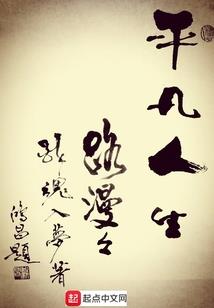 平凡人生
路漫々
醉魂入夢著
鴻昌題
起点中文网